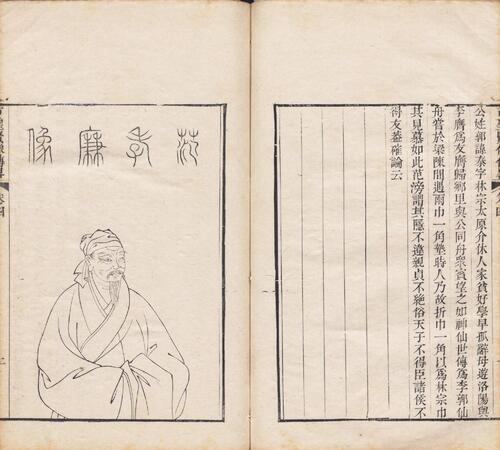 公姓郭諱泰字林宗太原介休人家貧好學早孤辭母遊洛陽與
李膺爲友膺歸鄉里與公同舟衆賓望之如神仙世傳爲李郭仙
舟嘗於梁陳間遇雨巾一角墊時人乃故折巾一角以爲林宗巾
其見慕如此范滂謂其隱不違親貞不絕俗天子不得臣諸侯不
得友蓋確論云
范孝廉像
卷四